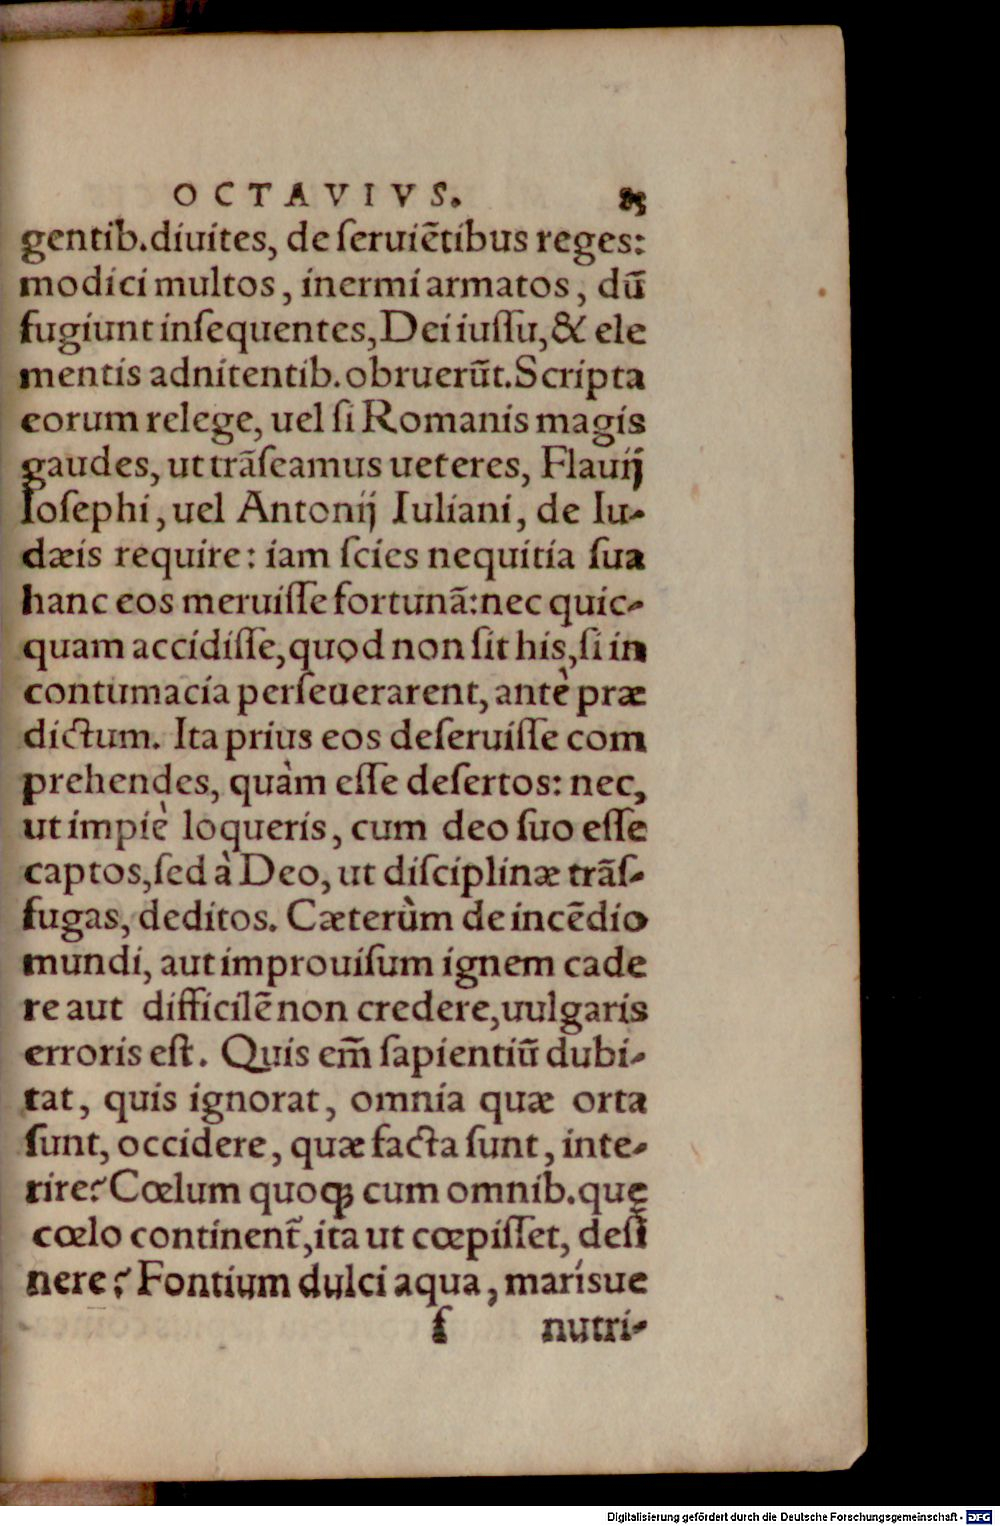 OCTAVIVS. 85
gentib.diuites, de ſeruiẽtibus reges:
modici multos, inermi armatos, dũ
fugiunt inſequentes, Dei iuſſu, & ele
mentis adnitentib. obruerũt. Scripta
eorum relege, uel ſi Romanis magis
gaudes, ut trãſeamus ueteres, Flauij
Ioſephi, uel Antonij Iuliani, de Iu-
dæis require: iam ſcies nequitia ſua
hanc eos meruiſſe fortunã: nec quic-
quam accidiſſe, quod non ſit his, ſi in
contumacia perſeuerarent, antè præ
dictum. Ita prius eos deſeruiſſe com
prehendes, quàm eſſe deſertos: nec,
ut impiè loqueris, cum deo ſuo eſſe
captos, ſed à Deo, ut diſciplinæ trãſ-
fugas, deditos. Cæterùm de incẽdio
mundi, aut improuiſum ignem cade
re aut difficilẽ non credere, uulgaris
erroris eſt. Quis em̃ ſapientiũ dubi-
tat, quis ignorat, omnia quæ orta
ſunt, occidere, quæ facta ſunt, inte-
rire? Cœlum quoq; cum omnib. quę
cœlo continent̃, ita ut cœpiſſet, deſi
nere? Fontium dulci aqua, mariſue
f nutri-
Digitalisierung gefördert durch die Deutsche Forschungsgemeinschaft - DFG